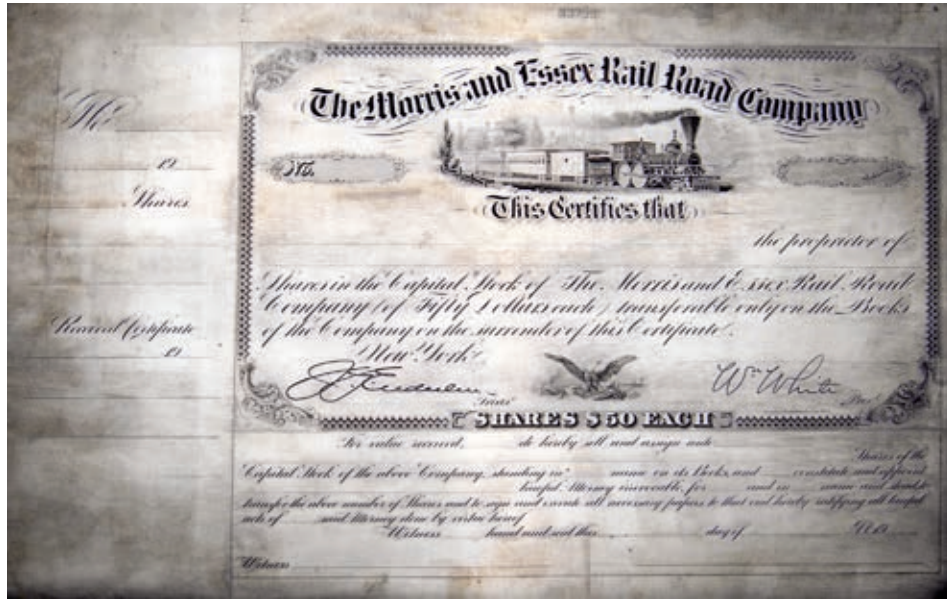 The Morris and Essex Rail Road Company
No.
No.
19
Shares
This Certifies that
the proprietor of
Shares in the Capital Stock of The Morris and Essex Rail Road
Company (of Fifty Dollars each) transferable only on the Books
of the Company on the surrender of this Certificate.
Received Certificate
19
New York
Wm White
Treas.
Pres.
SHARES $50 EACH
For value received, do hereby sell and assign unto
Shares of the
Capital Stock of the above Company, standing in name on its Books, and constitute and appoint
lawful Attorney irrevocable, for and in name and stead, to
transfer the above number of Shares and to sign and execute all necessary papers to that end hereby ratifying all lawful
acts of said Attorney done by virtue hereof
Witness hand and seal this day of
Witness